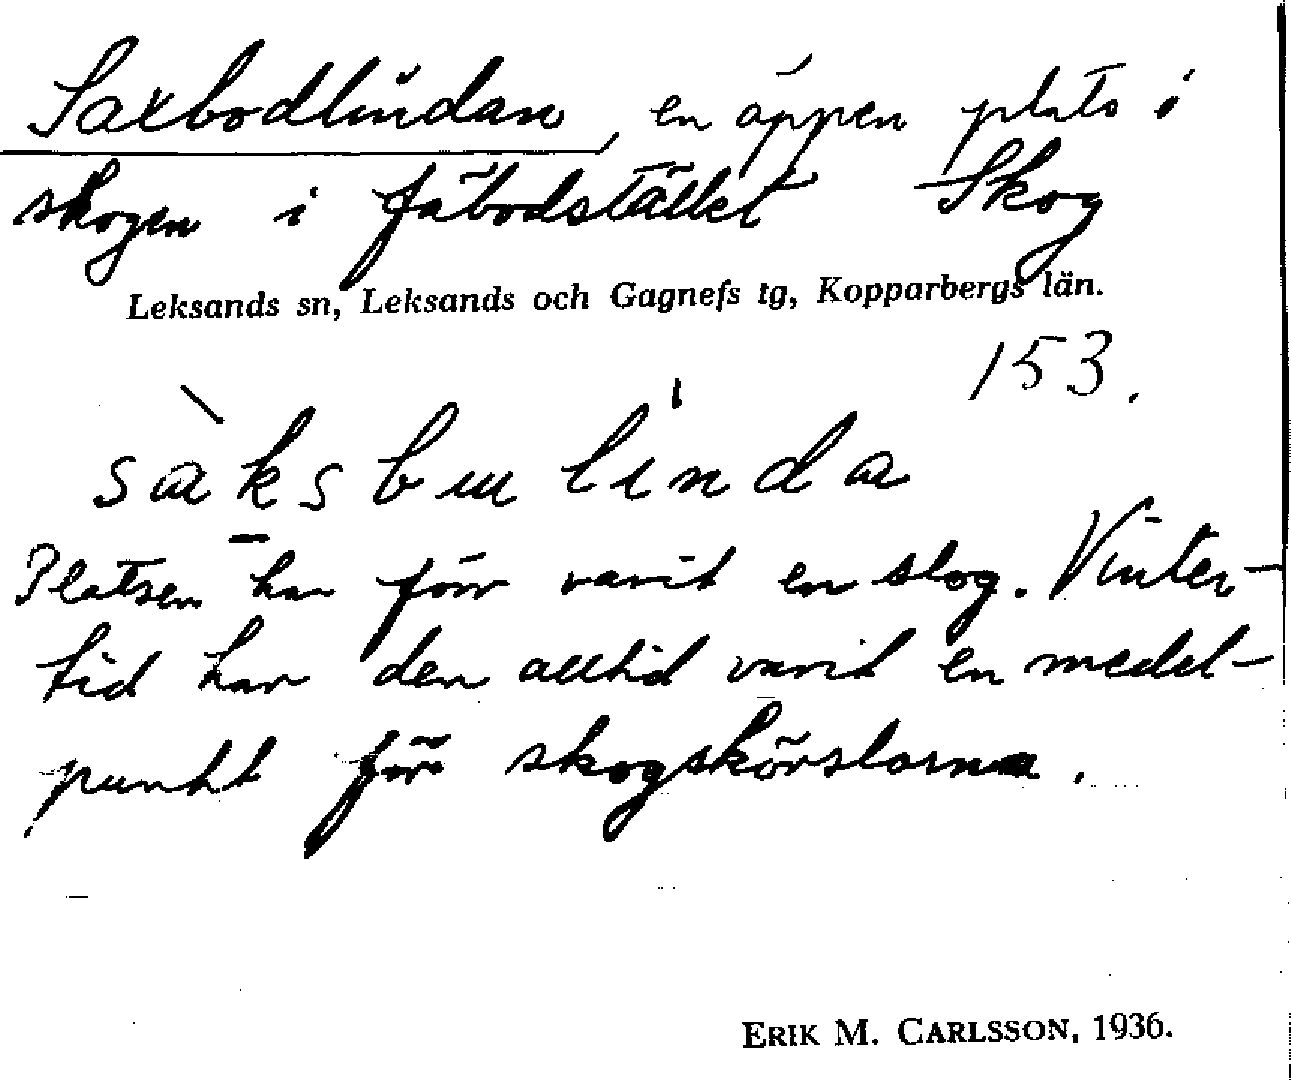 Saxbodlindan, en öppen plats i
skogen i fäbodstället Skog
Leksands sn, Leksands och Gagnefs tg, Kopparbergs län.
153.
sàksbu lìnda
Platsen har förr varit en slog. Vinter-
tid har den alltid varit en medel-
punkt för skogskörslorna.
ERIK M. CARLSSON, 1936.